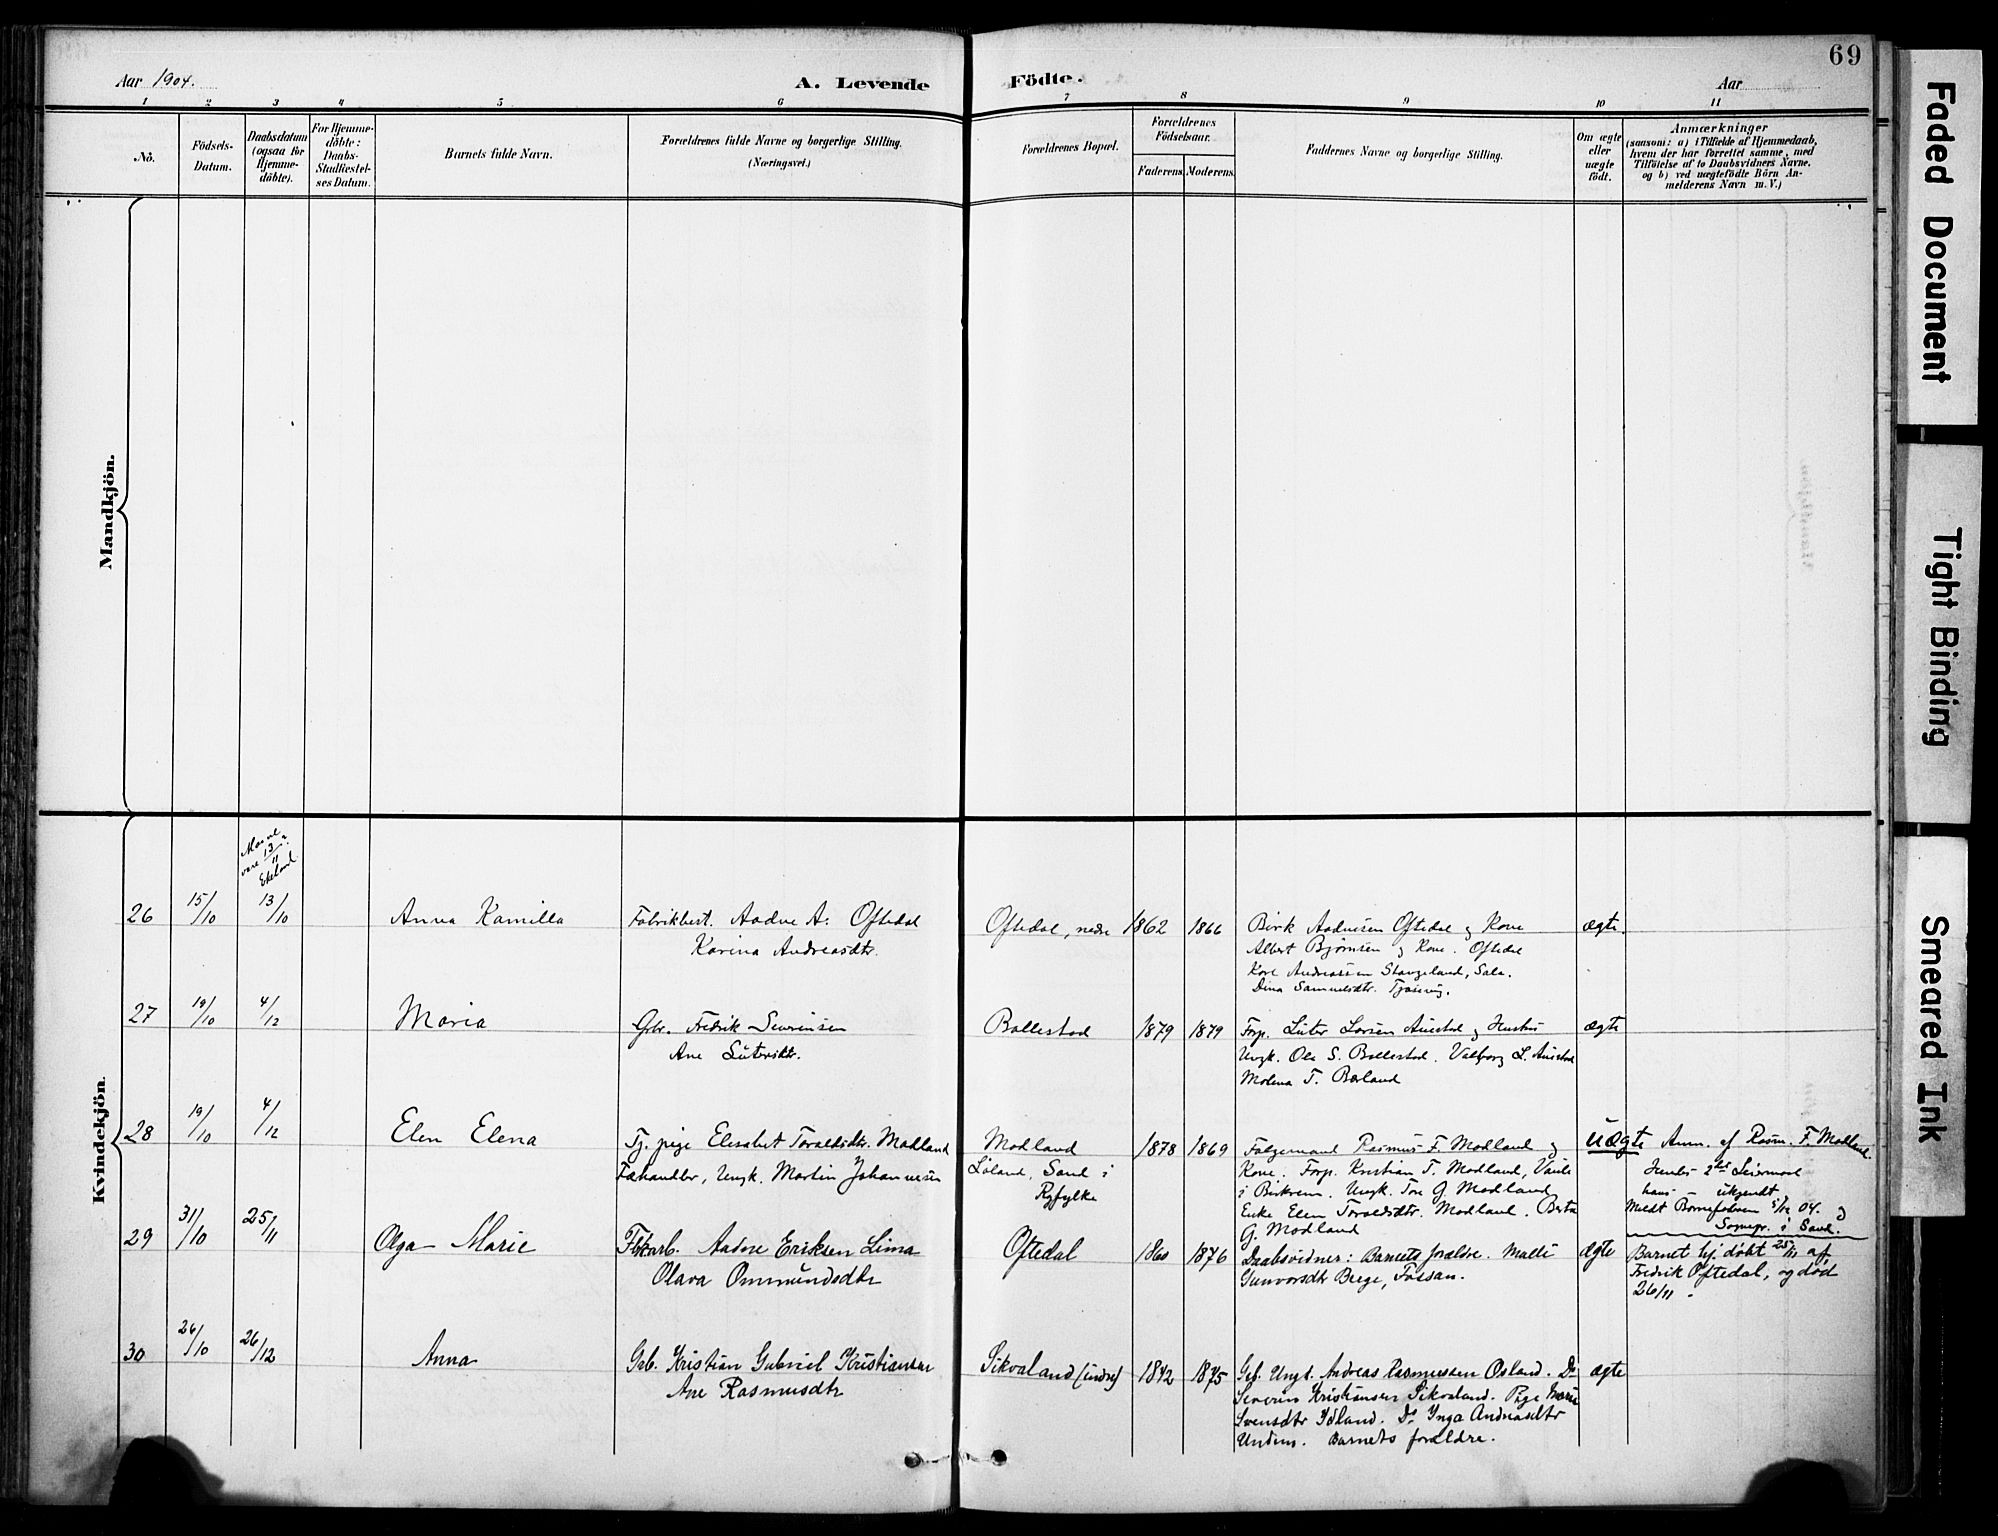 69
Aar 1904.
A. Levende Födte.
Aar
1 2 3 4 5 6 7 8 9 10 11
No.
Födsels-
Datum.
Daabsdatum
(ogsaa for
Hjemme-
döbte).
For Hjemme-
döbte:
Daabs-
Stadfæstel-
ses Datum.
Barnets fulde Navn.
Forældrenes fulde Navne og borgerlige Stilling.
(Næringsvei.)
Forældrenes Bopæl.
Forældrenes
Födselsaar.
Faderens. Moderens.
Faddernes Navne og borgerlige Stilling.
Om ægte
eller
uægte
födt.
Anmærkninger
(saasom: a) i Tilfælde af Hjemmedaab,
hvem der har forrettet samme, med
Tilföielse af to Daabsvidners Navne.
og b) ved uægtefödte Börn An-
melderens Navn m. V.)
Mandkjön.
Kvindekjön.
26
15/10
13/10
Anna Kamilla
Fabrikbest. Aadne A. Oftedal
Karina Andreasdtr.
Oftedal, nedre
1862
1866
Birk Aadnesen Oftedal og Kone
Albert Bjørnsen og Kone. Oftedal
Andreassen Stangeland, Sele.
Dina Samuelsdtr.
ægte.
27
19/10
4/12
Maria
Gbr. Fredrik Severinsen
Ane
Bollestad
1879
1879
Forp. Larsen Auestad og Hustru
Ungk. Ole S. Bollestad. Valborg L. Auestad
Malena T. Berland
ægte
28
19/10
4/12
Elen Elena
Tj. pige Elisabet Toraldsdtr. Modland
Fæhandler, Ungk. Martin Johannesen
Modland
Løland, Sand i
Ryfylke
1878
1869
Folgemand Rasmus F. Modland og
Kone. Forp. Kristian T. Modland,
i Birkrem. Ungk. Tore G. Modland
Enke Elen Toraldsdtr. Modland. Berta
G. Modland
uægte
Anm. af Rasm. F. Modland
Hendes 2det Leiermaal
hans ukjendt
Meldt 5/12 04. og
Sognepr. i Sand.
29
31/10
25/11
Olga Marie
Fbkarb. Aadne Eriksen Lima
Olava Ommundsdtr
Oftedal
1860
1876
Daabsvidner: Barnets forældre. Malli
Gunvorsdtr Berge, Fossan.
ægte
Barnet hj. døbt 25/11 af
Fredrik Oftedal, og død
26/11.
30
26/10
26/12
Anna
Grb. Kristian Gabriel Kristiansen
Ane Rasmusdtr
Sikvaland (indre)
1842
1875
Grb. Ungk. Andreas Rasmussen Osland. Do
Severin Kristiansen Sikvaland. Pige Marie
Svensdtr Ydland. Do Inga Andreasdtr
Undem. Barnets forældre.
ægte
Faded Document
Tight Binding
Smeared Ink